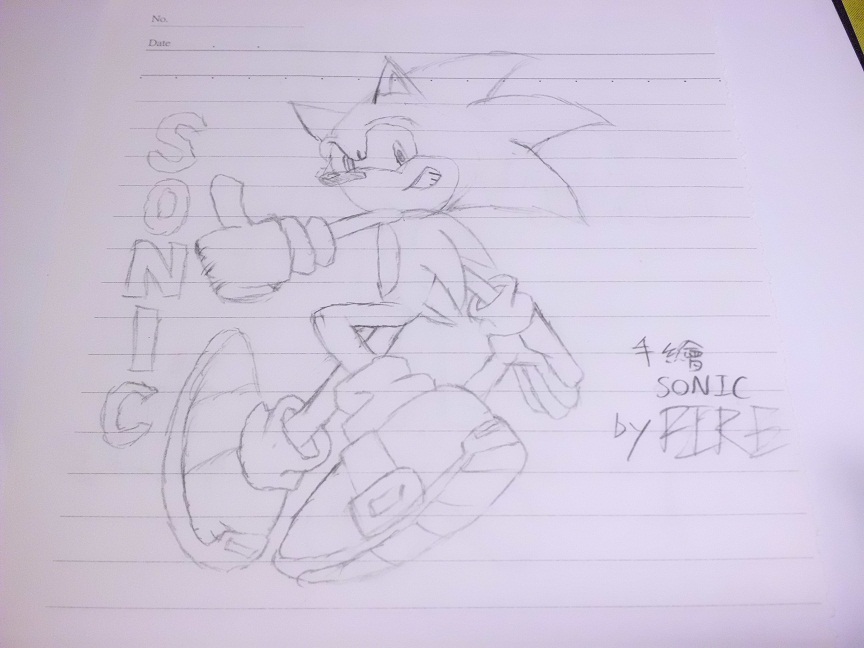 No.
Date
SONIC
手繪
SONIC
by FERE